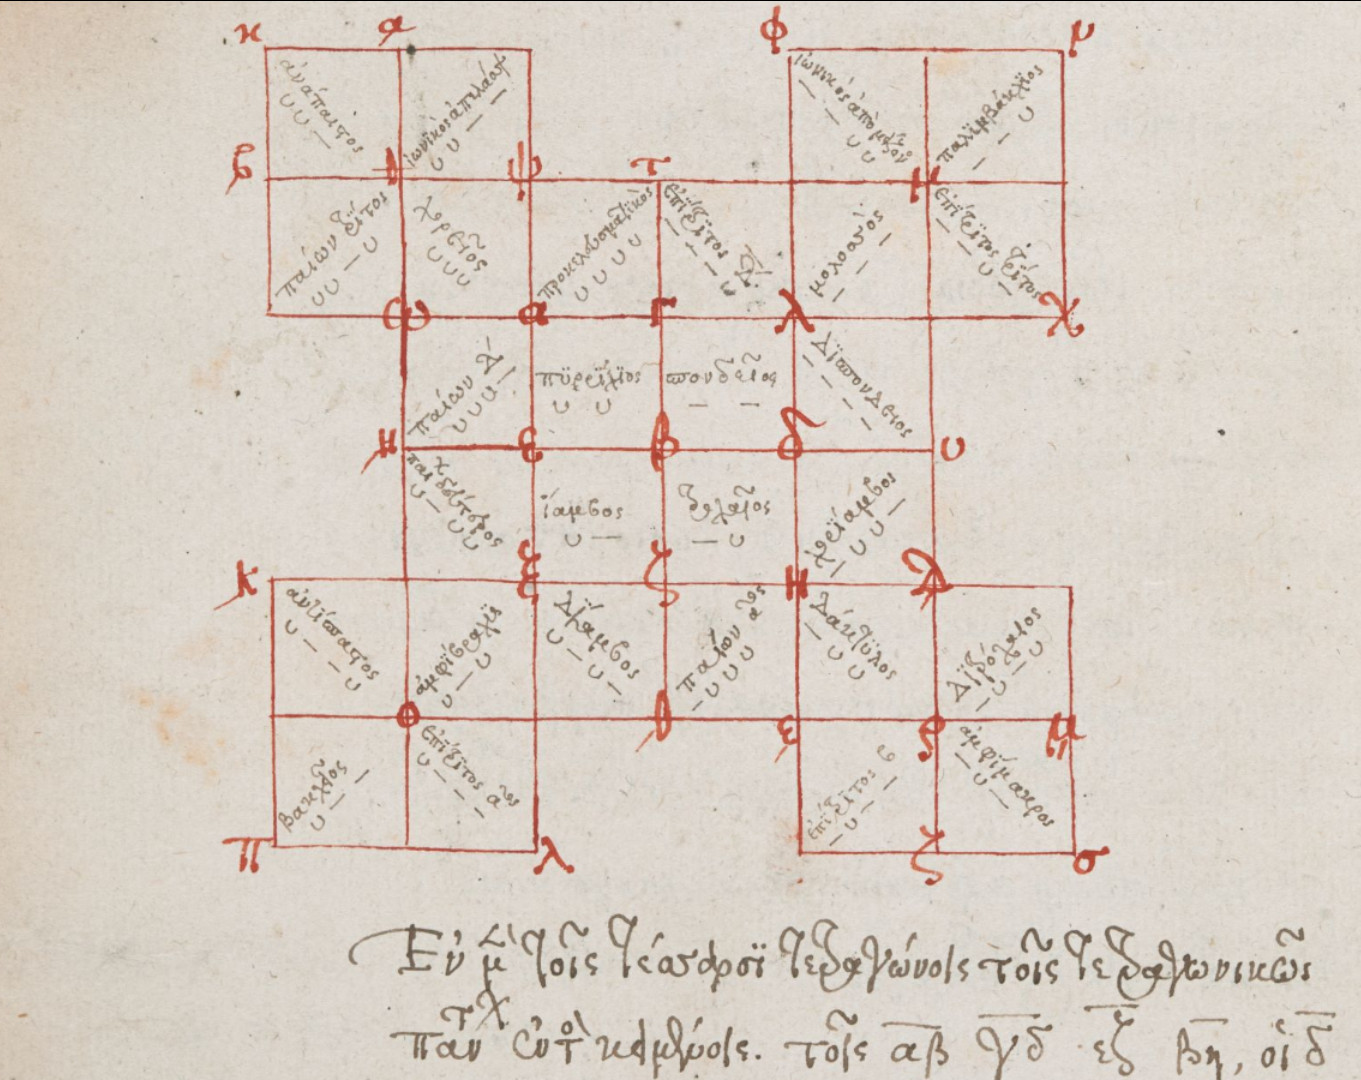 κ α φ μ
ἀνάπαιστος
ἰωνικὸς ἀπ' ἐλάσσ
ἰωνικὸς ἀπὸ μείζον
παλιμβάκχιος
β Δ ψ τ μ
παίων τρίτος
χορεῖος
προκελευσματικὸς
ἐπίτριτος δ'
μολοσσὸς
ἐπίτριτος τρίτος
ω α Γ λ χ
παίων δ'
πυρρίχιος
σπονδεῖος
δισπονδειος
Η ε β δ υ
παι δεύτερος
ἴαμβος
τροχαῖος
χορίαμβος
κ ξ ζ Η λ
ἀντίσπαστος
ἀμφίβραχυ
διΐαμβος
παίων α
δάκτυλος
διτρόχαιος
θ θ ε ρ μ
βακχεῖος
ἐπίτριτος α
ἐπίτριτος β
ἀμφίμακρος
π λ ζ σ
Ἐν μὲν τοῖς τέσσαρσι τετραγώνοις τοῖς τετραγωνικῶς
κειμένοις. τοῖς αβ γδ εζ βη, οἱ δ